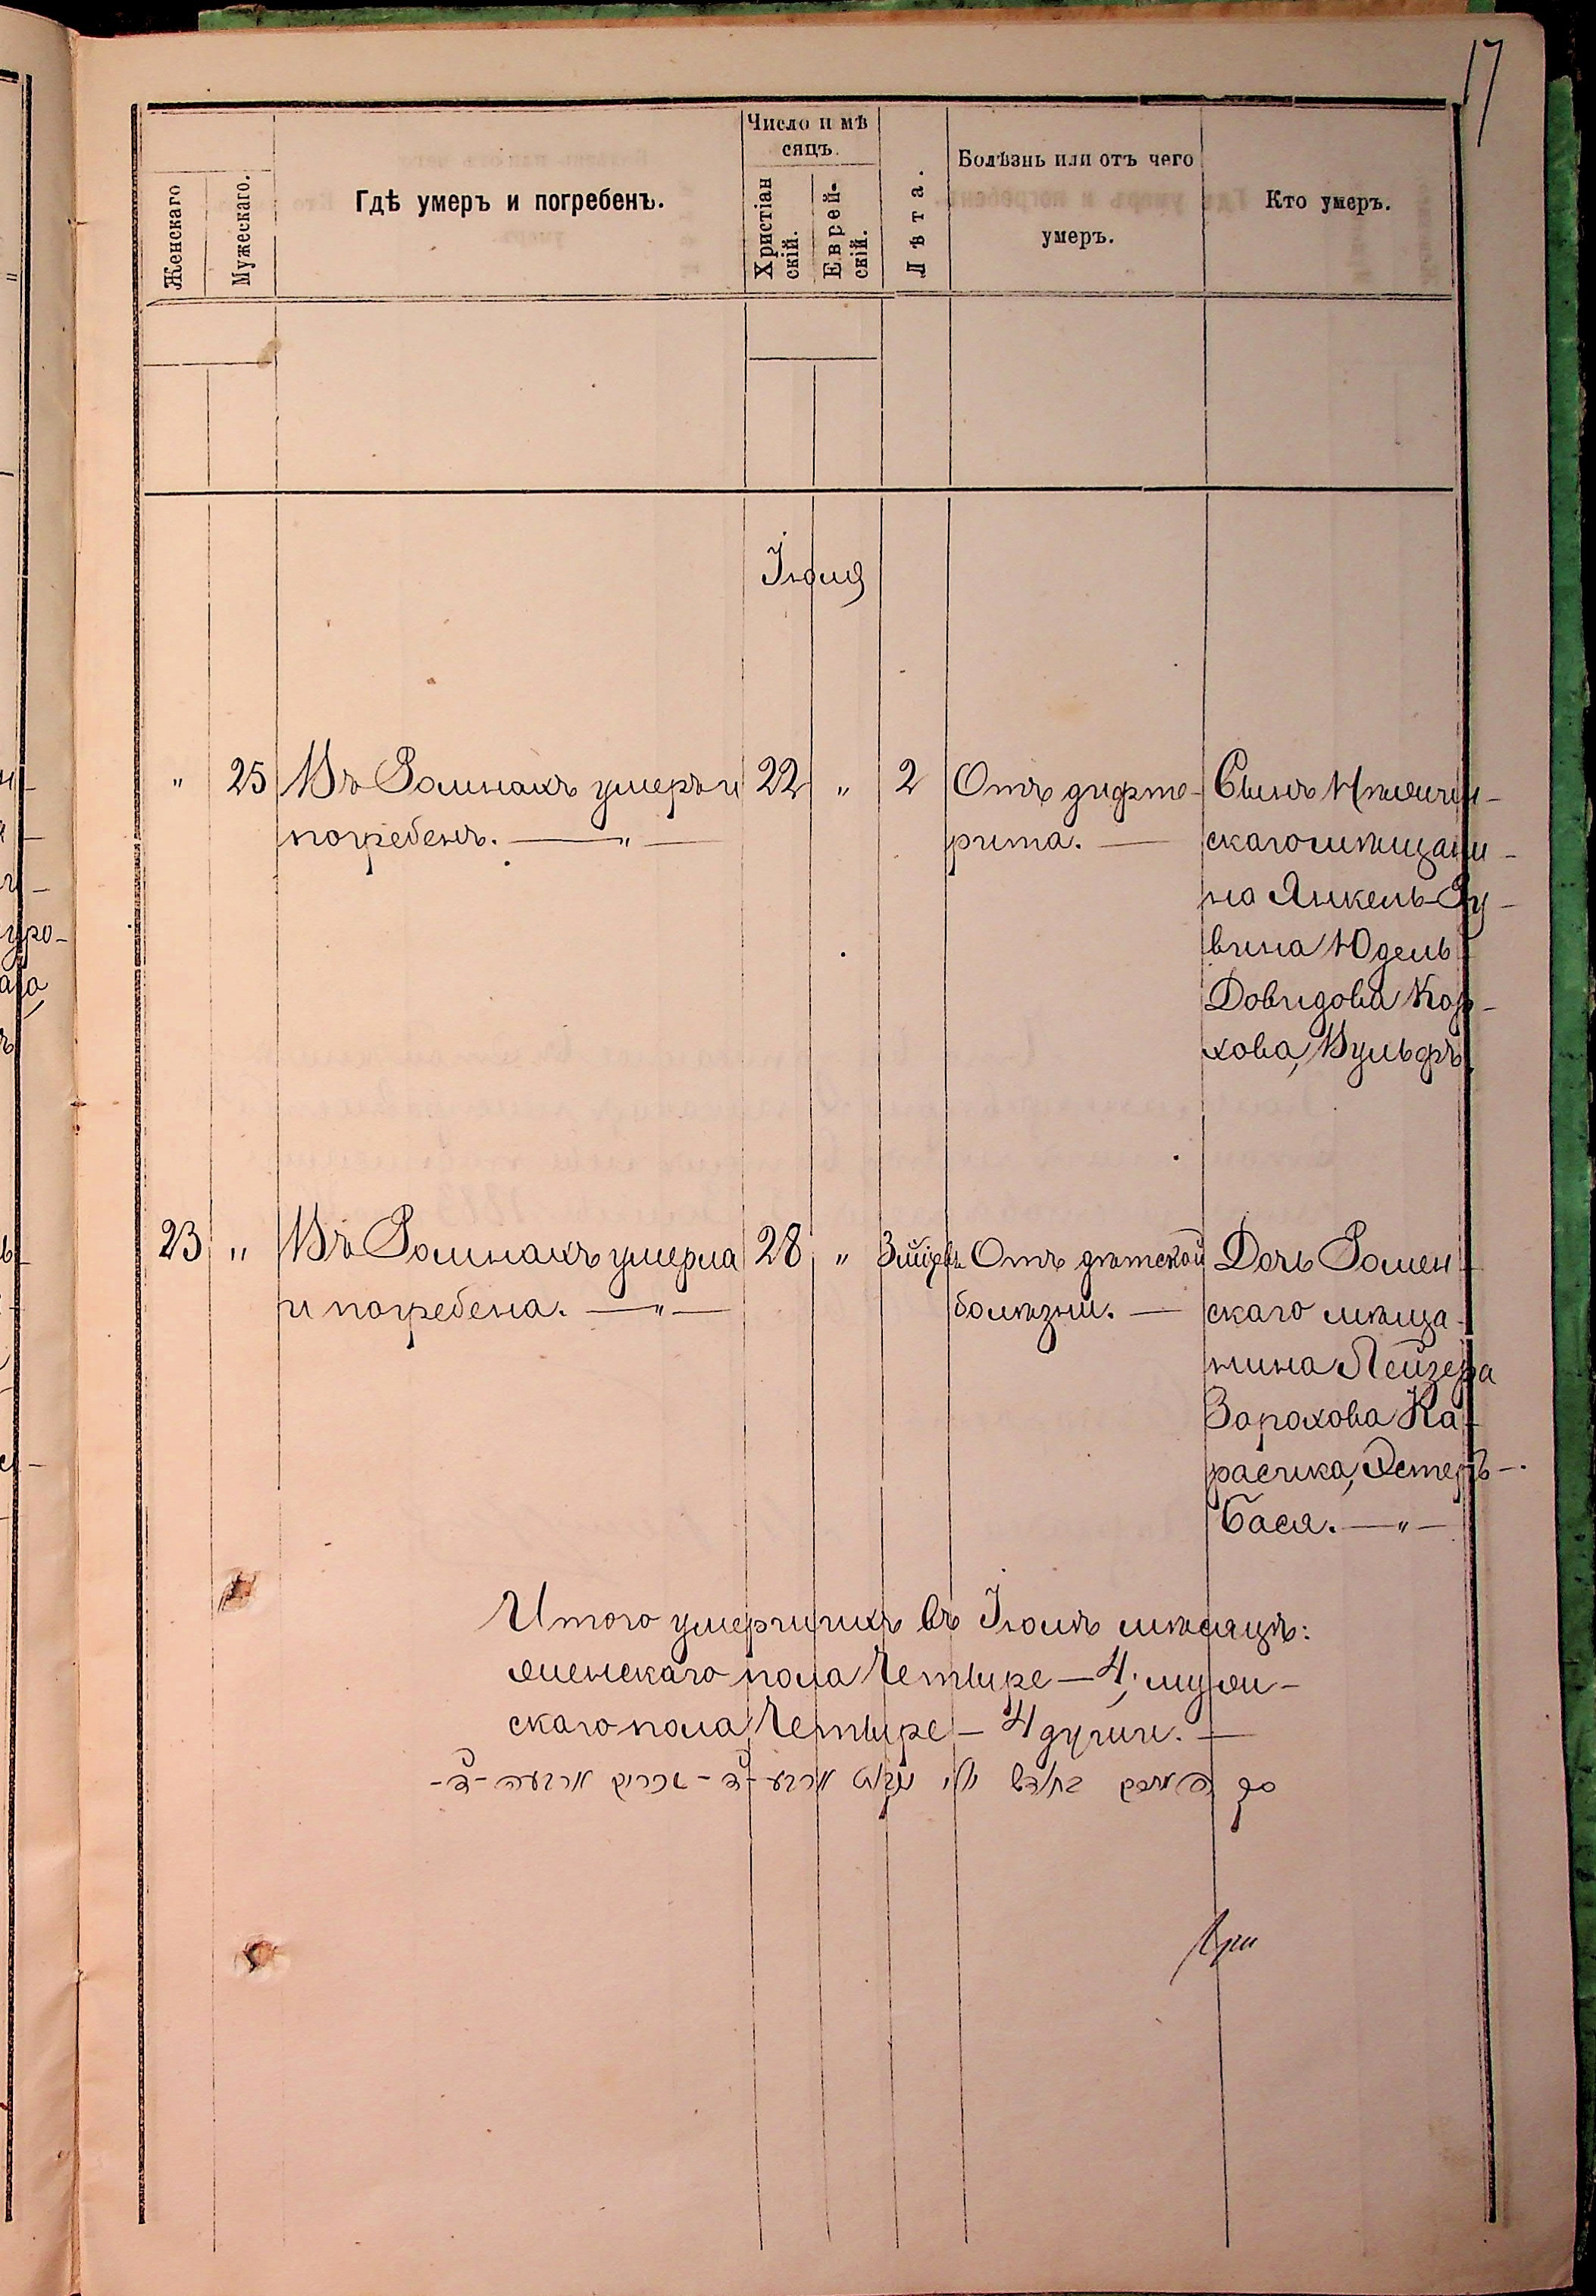 17
Женскаго
Мужескаго.
Гдѣ умеръ и погребенъ.
Число и мѣ
сяцъ.
Христіан
скій.
Еврей-
скій.
Лѣта.
Болѣзнь или отъ чего
умеръ.
Кто умеръ.
Іюля
" 25 Въ Ромнахъ умеръ и 22 " 2 Отъ дифте- Сынъ
погребенъ. — " — рита. — скаго мѣщани-
на Янкель-Ру-
вина Юдель
Довидова Кор-
хова, Вульфъ.
23 " Въ Ромнахъ умерла 28 " 3 Отъ дѣтской Дочь Ромен-
и погребена. — " — болѣзни. — скаго мѣща-
нина Лейзера
Зорохова Ка-
расика, Эстеръ-
Бася. — " —
Итого умершихъ въ Іюлѣ мѣсяцѣ:
женскаго пола Четыре — 4; муж-
скаго пола Четыре — 4 души. —